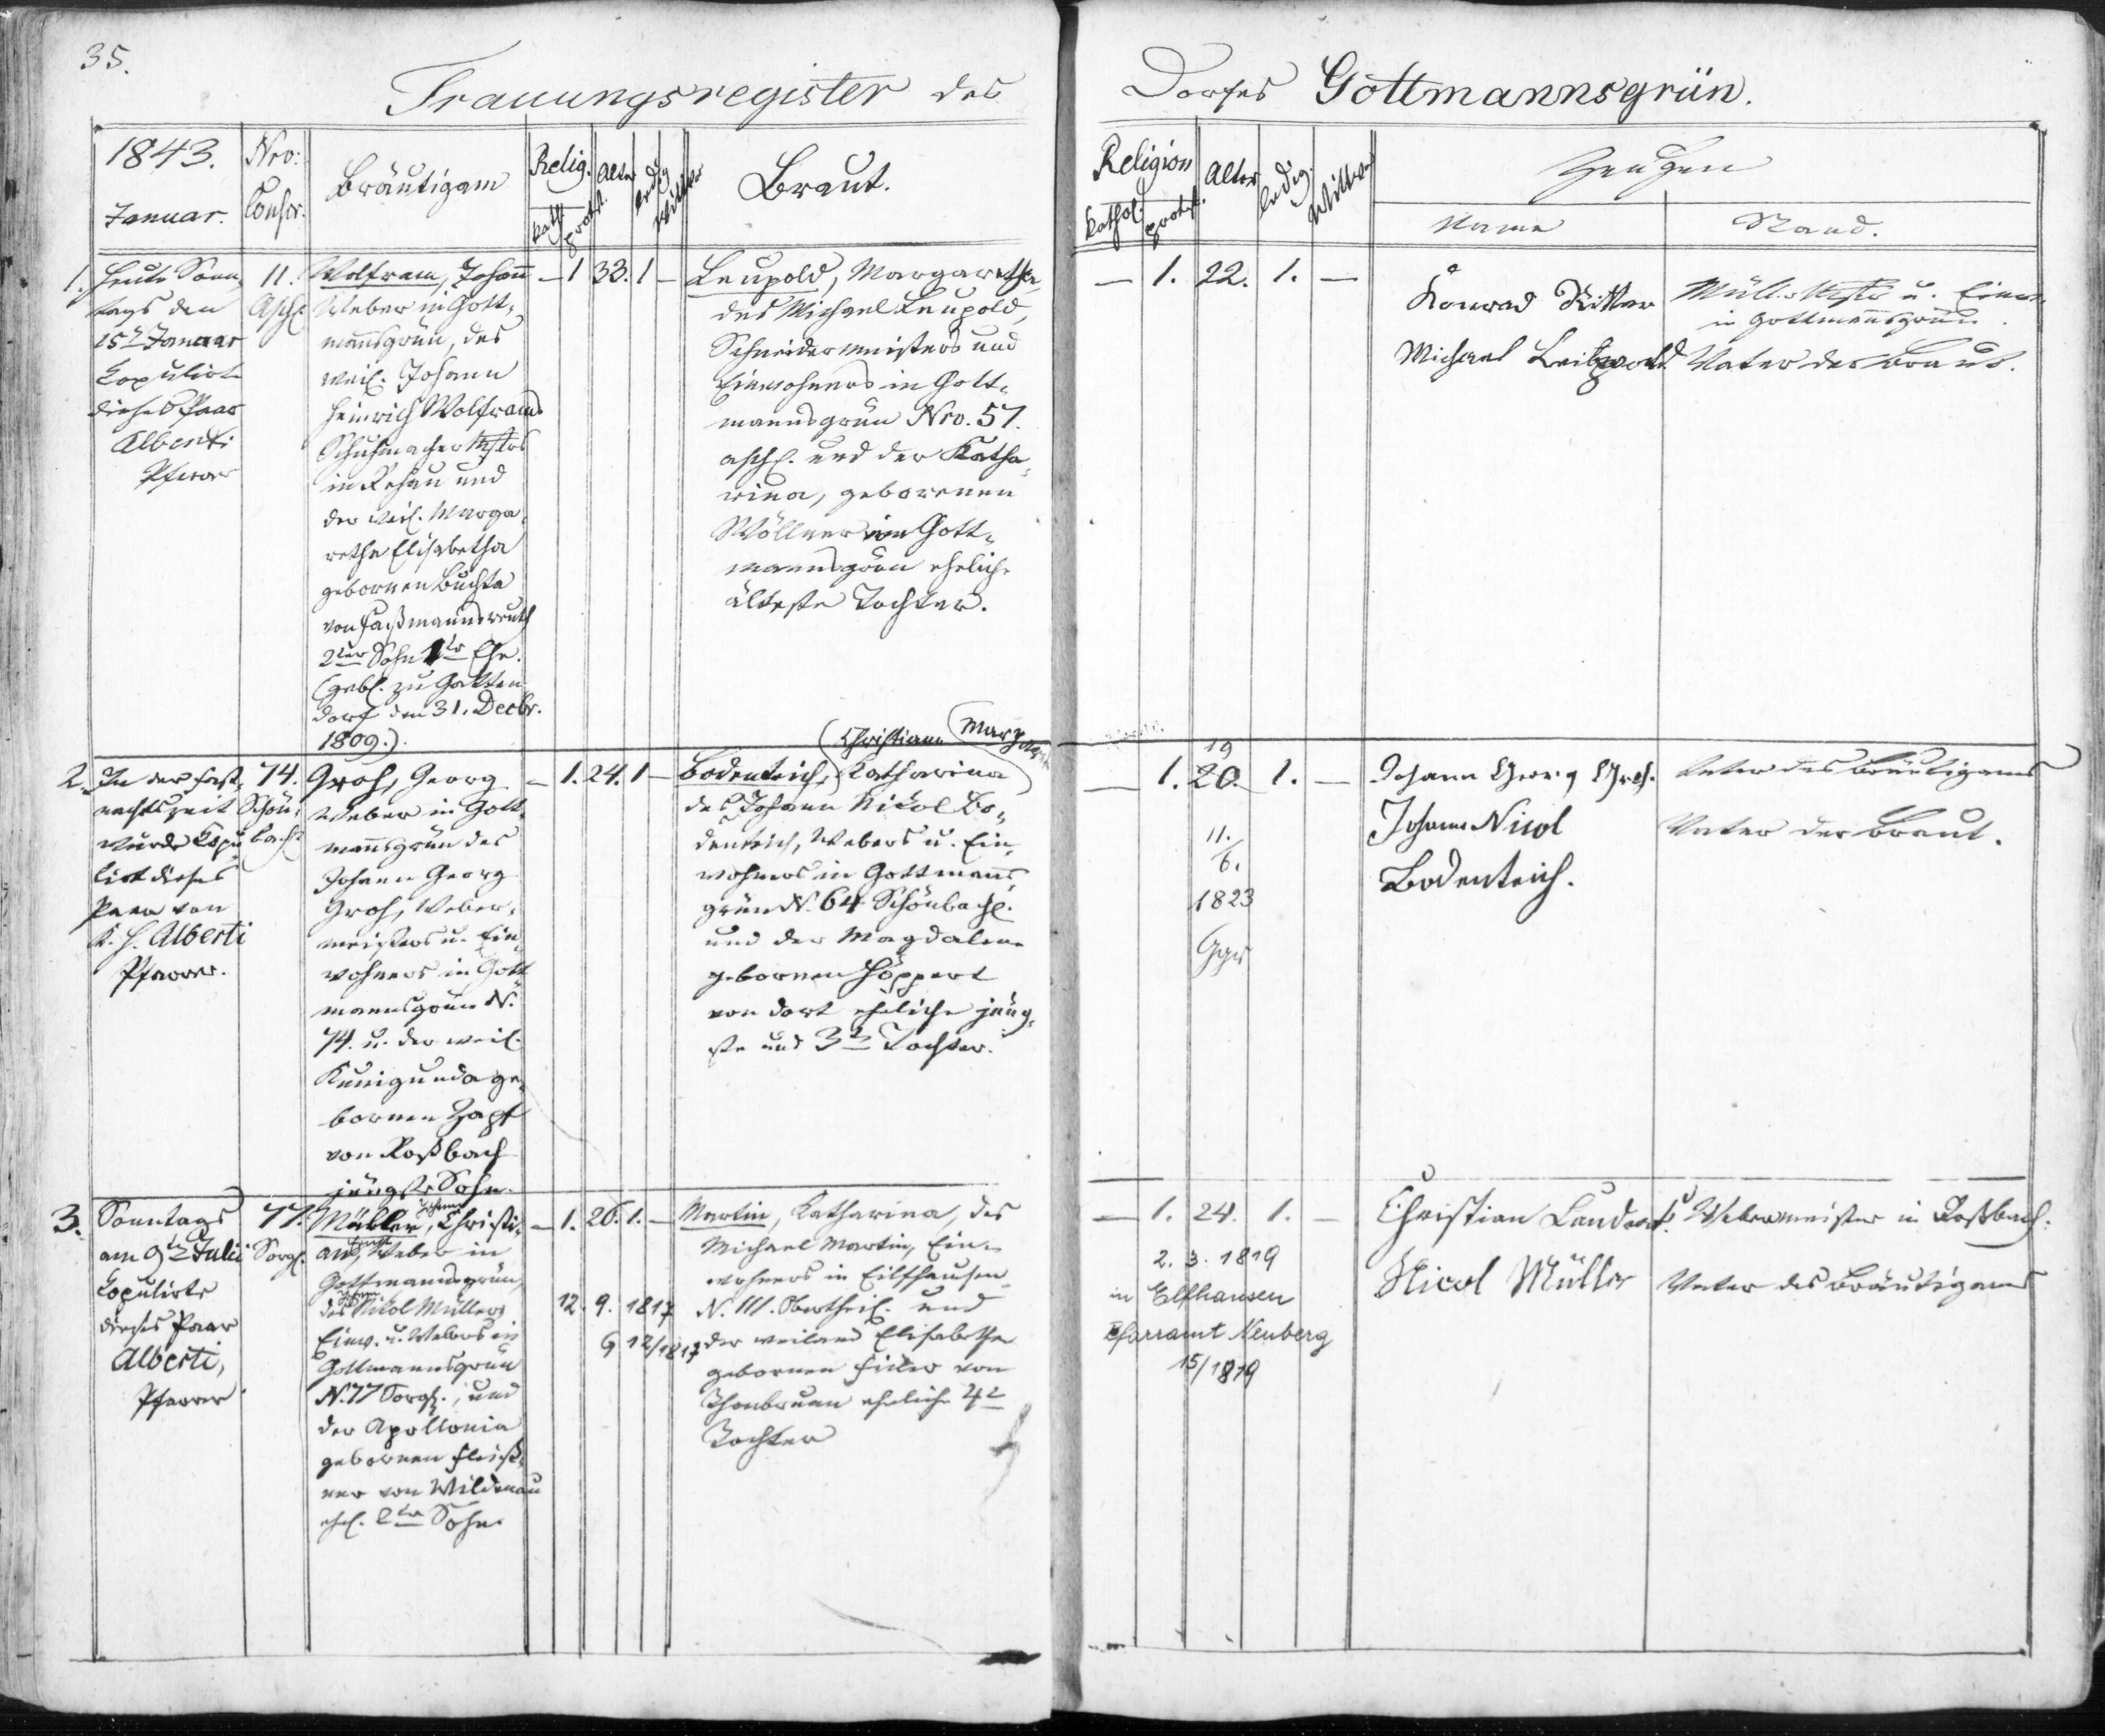 35.
Trauungsregister des Dorfes Gottmannsgrün.
1843.
Januar.
Nro:
Conscr.
Bräutigam
Relig.
kath
protest.
Alter
ledig
Wittwer
Braut.
Religion
kathol.
protest.
Alter
ledig.
Wittwe
Zeugen
Name
Stand.
1.
Heute Sonn-
tags den
15t Januar
Kopulirte
dieses Paar
Alberti
Pfarrer
11.
Asch.
Wolfram, Johann
Weber in Gott-
mannsgrün, des
weil. Johann
Heinrich Wolframs
Schuhmacher Mstrs
in Rehau und
der weil. Marga-
retha Elisabetha
gebornen Buchta
von Faßmannsreuth
2ter Sohn 1ter Ehe.
(gebl. zu Gatten-
dorf den 31. Decbr.
1809.).
— 1 33. 1 —
Leupold, Margaretha
des Michael Leupold,
Schneidermeisters und
Einwohners in Gott-
mannsgrün Nro. 57.
asch. und der Katha-
rina, geborenen
Wöllner von Gott-
mannsgrün ehelich
älteste Tochter.
— 1. 22. 1. —
Konrad Ritter
Müller Mstr u. Einw.
in Gottmannsgrün.
Michael Leibpold
Vater der Braut.
2.
In der Fast-
nachtszeit
wurde Kopu-
lirt dieses
Paar von
K. H. Alberti
Pfarrer.
74.
Schön-
bach.
Groh, Georg
Weber in Gott-
mannsgrün des
Johann Georg
Groh, Weber-
meisters u. Ein-
wohners in Gott
mannsgrün N.
74. u. der weil.
Kunigunda ge-
bornen Zapf
von Roßbach
jüngster Sohn.
— 1. 24. 1 —
(Christiane Margar
Bodenteich, Katharina
des Johann Nicol Bo-
denteich, Webers u. Ein-
wohners in Gottmanns
grün N. 64 Schönbach.
und der Magdalena
gebornen Höppert
von dort eheliche jüng-
ste und 3te Tochter.
19
— 1. 20. 1. —
11.
6.
1823
Johann Georg Groh.
Vater des Bräutigams
Johann Nicol
Bodenteich.
Vater der Braut.
3.
Sonntags
am 9ten Julii
Kopulirte
dieses Paar
Alberti,
Pfarrer
77.
Sorgl.
Johann
Müller, Christi-
an, Weber in
Gottmannsgrün,
Johann
des Nicol Müllers
Einw. u. Webers in
Gottmannsgrün
N. 77 Sorgl., und
der Apollonia
gebornen Fleiß-
ner von Wildenau
ehl. 2ter Sohn
— 1. 26. 1. —
12. 9. 1817
G 12/1817
Martin, Katharina, des
Michael Martin, Ein-
wohners in Eilfhausen
N. 111. Obertheil. und
der weiland Elisabetha
gebornen Fidler von
Thonbrunn eheliche 4te
Tochter
— 1. 24. 1. —
2. 3. 1819
in Elfhausen
Pfarramt Neuberg
15/1819
Christian Landrock
Webermeister in Roßbach.
Nicol Müller
Vater des Bräutigams